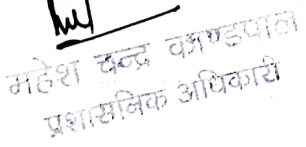 महेश चन्द्र काण्डपाल
प्रशासनिक अधिकारी